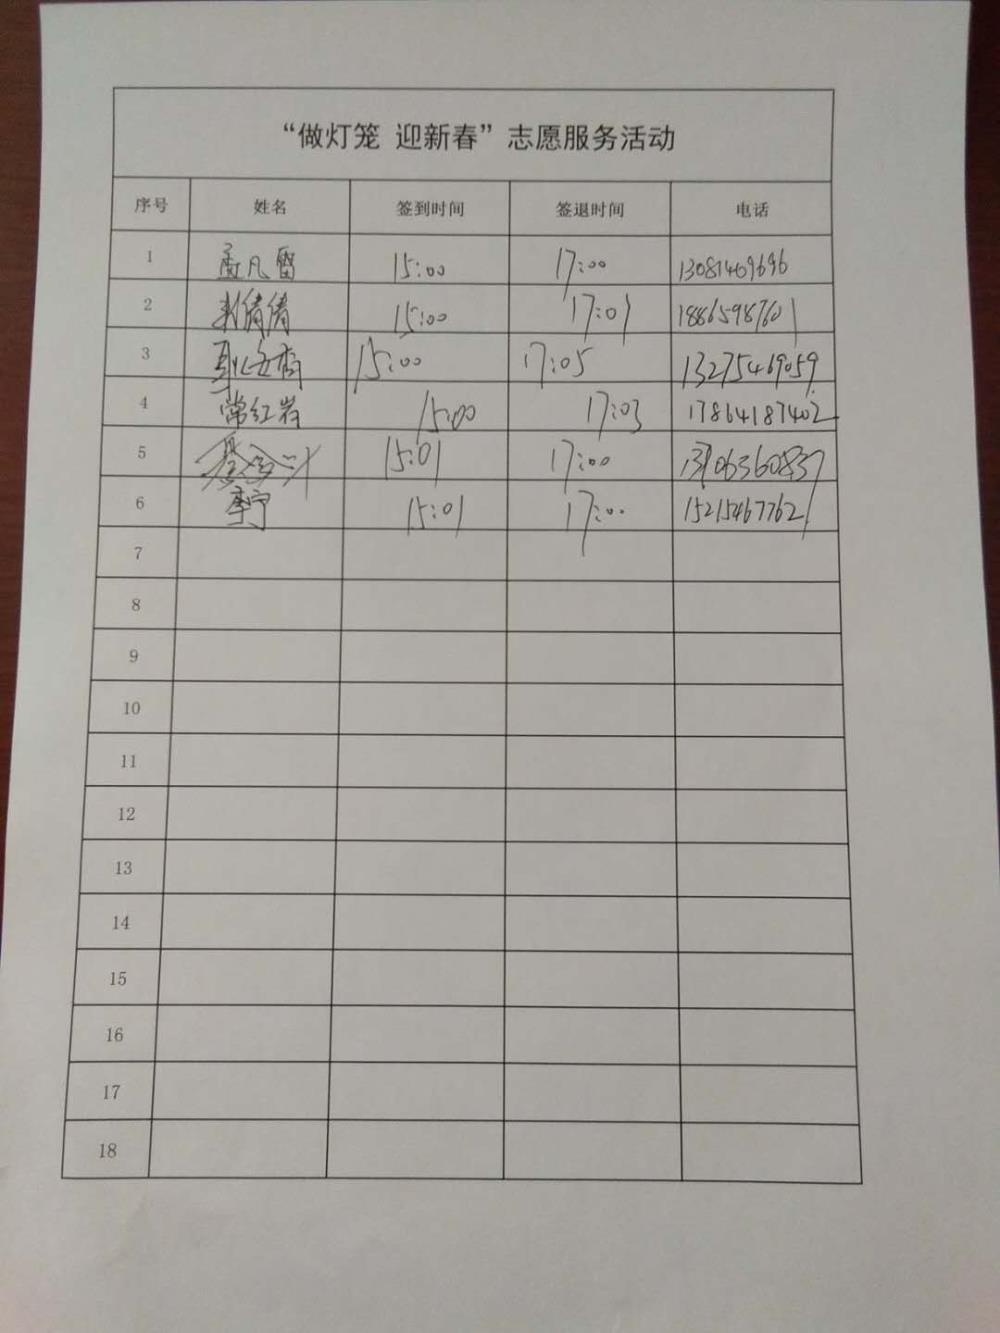 “做灯笼 迎新春”志愿服务活动
序号 姓名 签到时间 签退时间 电话
1 孟凡雷 15:00 17:00 13081469696
2 刘倩倩 15:00 17:01 18865987601
3 15:00 17:05 13275469059
4 常红岩 15:00 17:03 17864187402
5 15:01 17:00
6 李宁 15:01 17:00 15215467762
7
8
9
10
11
12
13
14
15
16
17
18